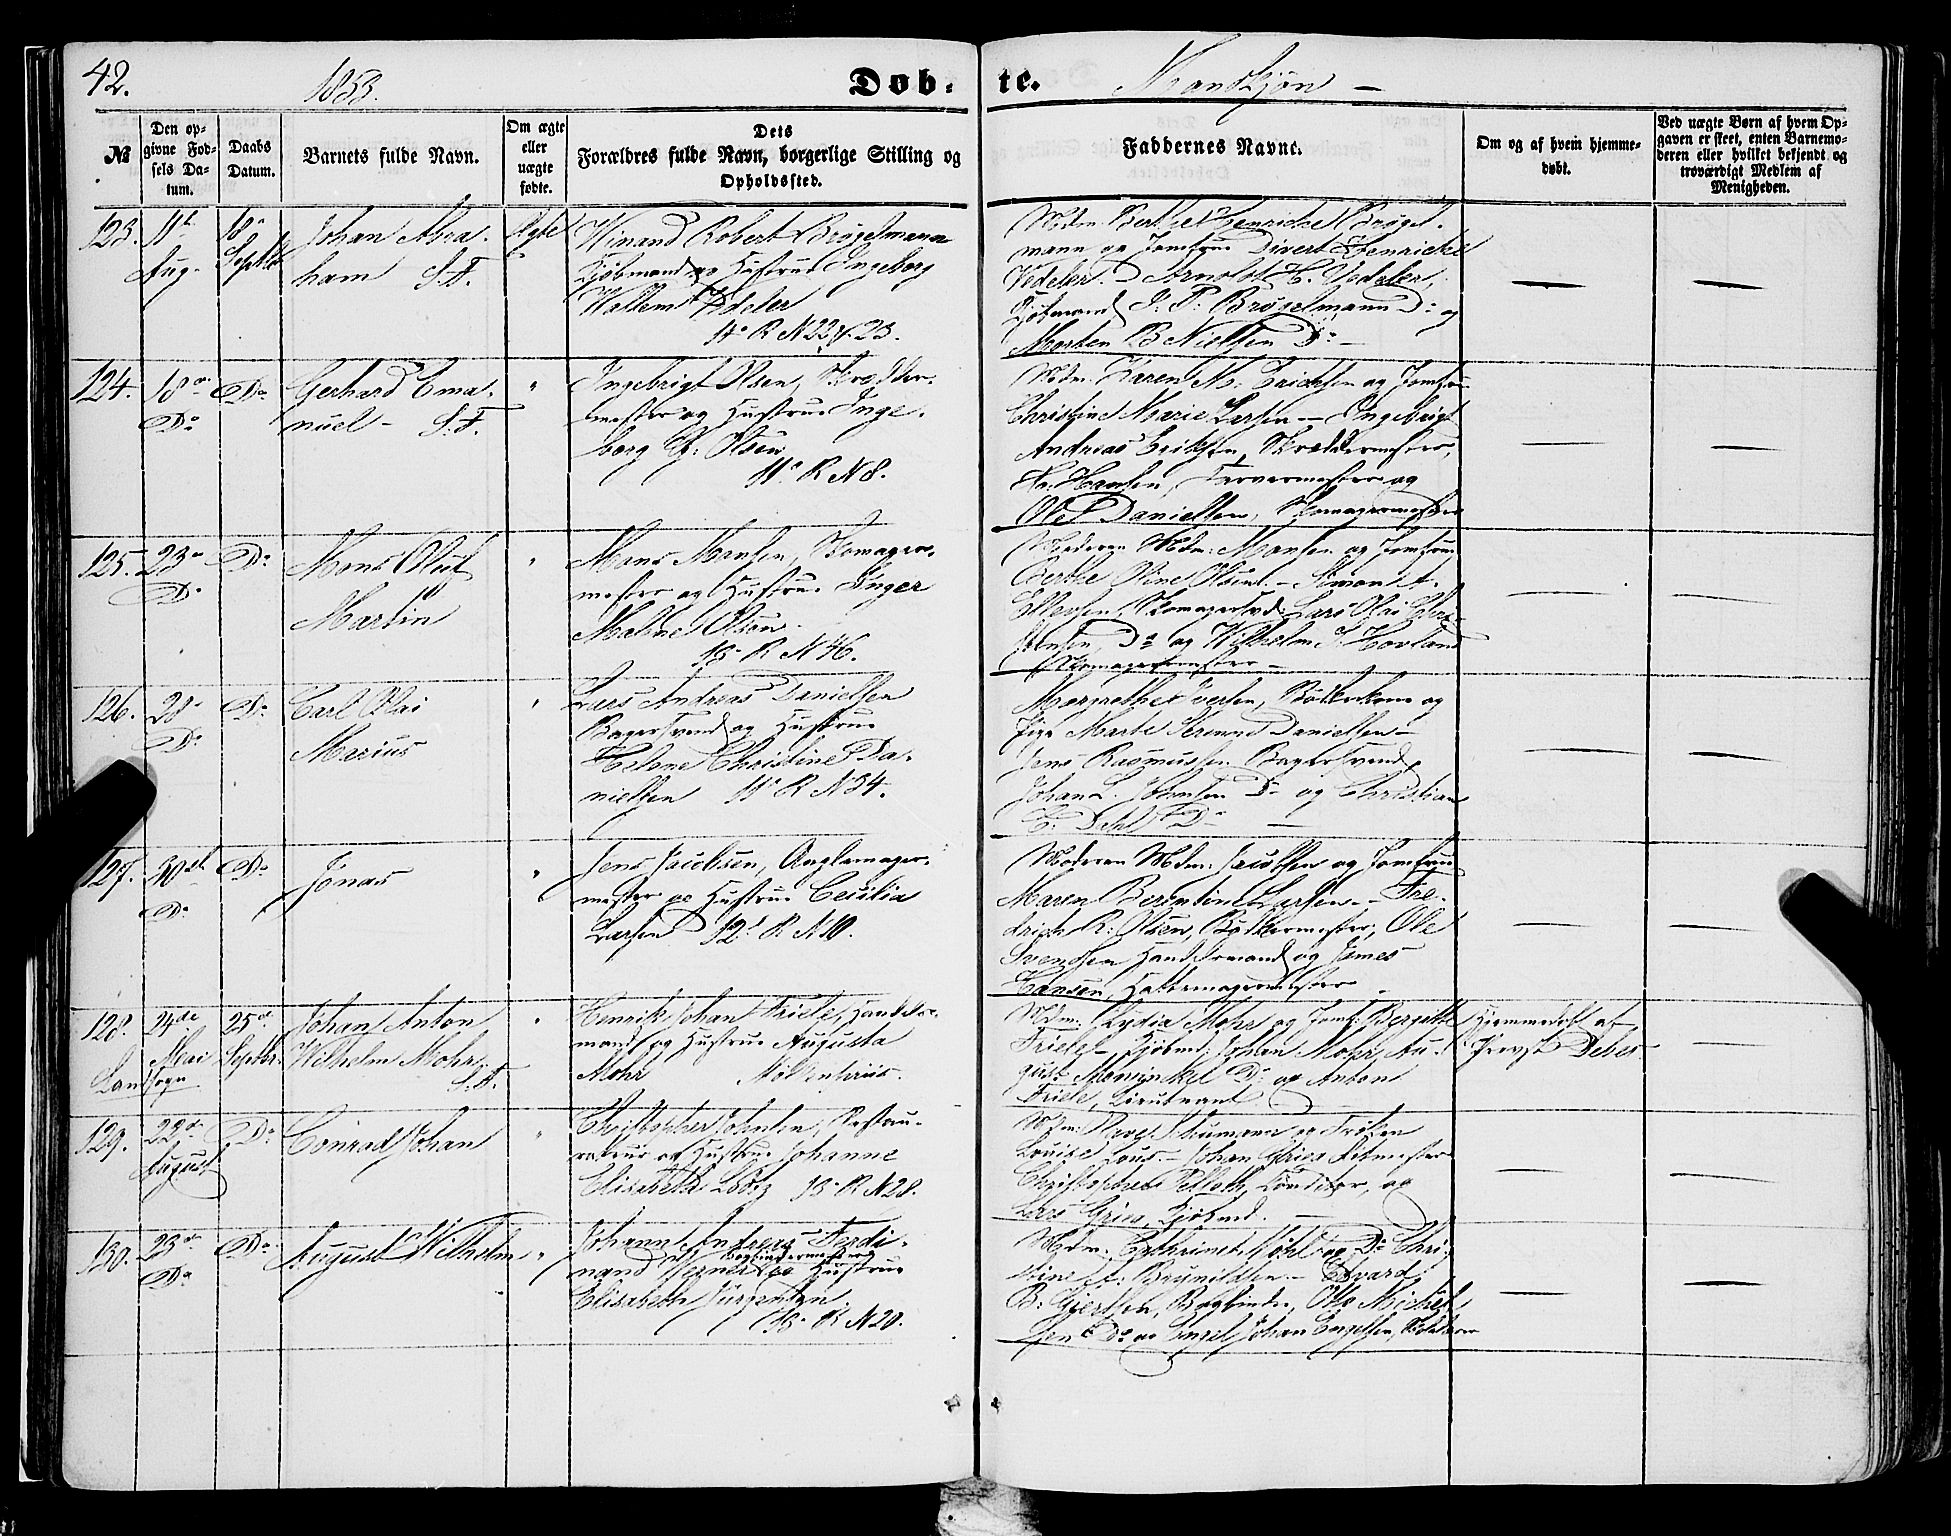 42. 1853. Døb- te. Mandkjøn –
№
Den op-
givne Fød-
sels Da-
tum.
Daabs
Datum.
Barnets fulde Navn.
Om ægte
eller
uægte
fødte.
Dets
Forældres fulde Navn, borgerlige Stilling og
Opholdssted.
Faddernes Navne.
Om og af hvem hjemme-
døbt.
Ved uægte Børn af hvem Op-
gaven er skeet, enten Barnemo-
deren eller hvilket bekjendt og
troværdigt Medlem af
Menigheden.
123. 11te
Aug.
18de
Septbr
Johan Abra-
ham S.A.
Ægte
Winand Robert Brøgelmann
Kjøbmand og Hustrue Ingeborg
Wallem Vedeler
R N 22 & 23.
Mdm. Berthe Henricke Brøgel-
mann og Jomfru Divert Henricke
Vedeler. Arnold H. Vedeler,
Kjøbmand, J. P. Brøgelmann Do og
Morten B Nielsen Do –
– –
124. 18de
Do
Do
Gerhard Ema-
nuel – S.A.
"
Ingebrigt Olsen, Skrædder-
mester og Hustrue Inge-
borg G. Olsen
11te R N 8.
Mdm. Karen M. Erichsen og Jomfru
Christine Marie Larsen – Ingebrigt
Andreas Eriksen, Skræddermester,
Hansen, Farvermester og
Ole Danielsen, Skomagermester
– –
125. 23de
Do
Do
Mons Oluf
Martin
"
Mons Monsen, Skomager-
mester og Hustrue Inger
Maline Olsen.
R N 46.
Moderen Mdm. Monsen og Jomfru
Berthe Oline Olsen. – Simon A.
Ellevsen Skomagersvd. Lars Olai
Jensen, Do og Wilhelm J. Hovland
Skomagermester –
– –
126. 28de
Do
Do
Carl Olai
Marius
"
Lars Andreas Danielsen
Bagersvend og Hustrue
Helene Christine Da-
nielsen 11te R N 34.
Margrethe Iversen, Bødkerkone og
Pige Marte Serine Danielsen –
Jens Rasmussen Bagersvend,
Johan L. Johnsen Do og Christian
C. Dehl Do –
– –
127. 30te
Do
Do
Jonas
"
Jens Jacobsen, Anglemager-
mester og Hustrue Cecilia
Larsen 12te R N 10.
Moderen Mdm. Jacobsen og Jomfrue
Maren Berentine Larsen – Fre-
drich R. Olsen, Bødkermester, Ole
Svendsen Handelsmand og James
Hansen, Hattemagermester.
– –
128. 24de
Mai
Landsogn
25de
Septbr.
Johan Anton
Wilhelm Mohr
S.A.
"
Henrik Johan Friele, Handels-
mand og Hustrue Augusta
Mohr Møllendriis.
Mdm. Lydia Mohr og Jomf. Bergette
Friele – Kjøbmd. Johan Mohr, Au-
gust Mowinckel Do og Anton
Friele, Lieutnant –
Hjemmedøbt af
Provst Debes.
–
129. 22de
August
Do
Conrad Johan
"
Christopher Johnsen, Restau-
rateur og Hustrue Johanne
Elisabeth R N 28.
Mdm. Schumann og Frøken
Louise Lous. – Johan Gries
Christopher Pelloth, Conditor, og
Lars Gries, Kjøbmd. –
– –
130. 23de
Do
Do
August Wilhelm
"
Johann Andreas Ferdi-
Bogbindermester
nand Werner og Hustrue
Elisabeth Jürgensen
R N 20.
Mdm. Cathrine Kohl og Do Chri-
stine A. Brynildsen – Edvard
B. Giertsen, Bogbinder, Ole Michel-
sen Do og Engel Johan Engelsen,
– –